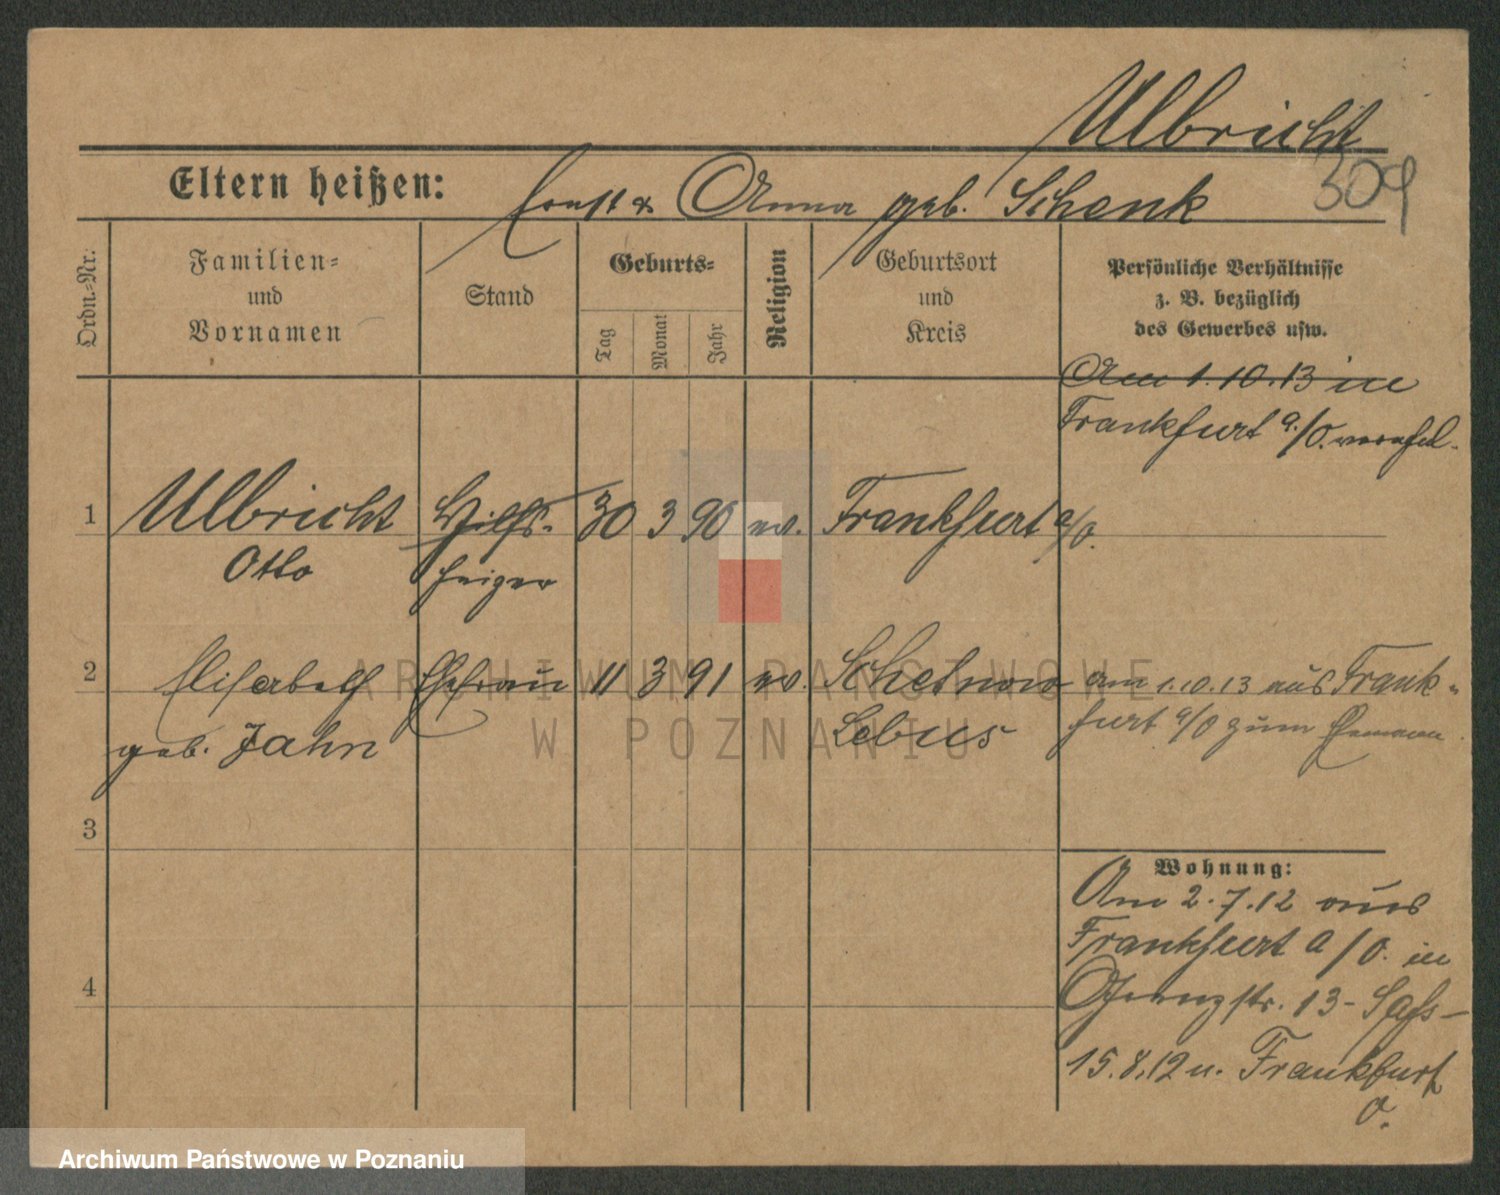 Ulbricht
309
Eltern heißen: Ernst & Anna geb. Schenk
Ordn.-Nr.
Familien-
und
Vornamen
Stand
Geburts-
Tag
Monat
Jahr
Religion
Geburtsort
und
Kreis
Persönliche Verhältnisse
z. B. bezüglich
des Gewerbes usw.
Am 1.10.13 in
Frankfurt a./O. verehel.
1 Ulbricht Hilfs- 30 3 90 ev. Frankfurt a/O.
Otto heizer
2 Elisabeth Ehefrau 11 3 91 ev. Schetnow am 1.10.13 aus Frank-
geb. Jahn Lebus furt a/O zum Ehemann.
3
4
Wohnung:
Am 2.7.12 aus
Frankfurt a/O. in
13-
15.8.12 n. Frankfurt
O.
ARCHIWUM PAŃSTWOWE
W POZNANIU
Archiwum Państwowe w Poznaniu